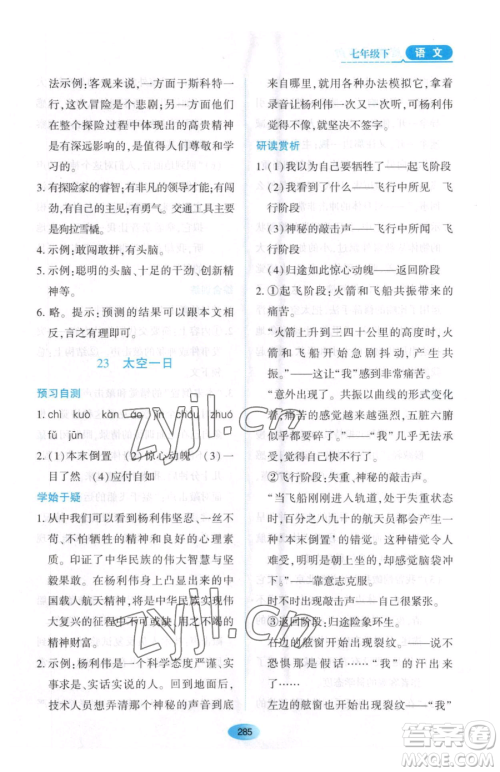 七年级下 语文
法示例:客观来说,一方面于斯科特一行
而言,这次冒险是个悲剧;另一方面他们
在整个探险过程中体现出的高贵精神
是有深远影响的,是值得人们尊敬和学
习的。
3. 有探险家的睿智;有非凡的领导力;有闯
劲,有自己的主见;有勇气。交通工具主要
是狗拉雪橇。
4. 示例:敢闯敢拼,有头脑。
5. 示例:聪明的头脑、十足的干劲、创新精
神等。
6. 略。提示:预测的结果可以跟本文相
反,言之有理即可。
23 太空一日
预习自测
1. chì kuò kàn
chóu zhuó
fǔ jūn
2. (1)本末倒置 (2)惊心动魄 (3)一
目了然 (4)应付自如
学始于疑
1. 从中我们可以看到杨利伟坚忍、一丝不
苟、不怕牺牲的精神和良好的心理素
质。印证了中华民族的伟大智慧与坚
毅果敢。在杨利伟身上所体现出来的中
国载人航天精神,将是我们中华民族实现伟
大复兴的历程中永恒的、用之不竭的
精神财富。
2. 示例:杨利伟是一个科学态度严谨、实
事求是的人。因为,回到地面后,
技术人员想弄清那个神秘的声音到底
来自哪里,就用各种办法模拟它,拿
着录音让杨利伟一次一次听,可杨利
伟听了以后,就是坚决不签字。
研读赏析
1. (1)我以为自己要牺牲了——起飞阶段
(2)我看到了什么——飞行中所见 飞
行阶段
(3)神秘的敲击声——飞行中所闻 飞
行阶段
(4)归途如此惊心动魄——返回阶段
2. ①起飞阶段:火箭和飞船共振带来的
痛苦。
“火箭上升到三四十公里的高度时,火
箭和飞船开始急剧抖动,产生共
振。”——“我”感到非常痛苦。
“共振以曲线的形式变化
着,痛苦的感觉越来越强烈,五脏六腑
似乎都要碎了。”——“我”几乎无法承受,
觉得自己快不行了。
②飞行阶段:失重、神秘的敲击声
“当飞船刚刚进入轨道,处于失重状态
时,百分之八九十的航天员都会产生
一种‘本末倒置’的错觉。这种错觉令人
难受,明明是朝上坐的,却感觉脑袋冲
下。”——靠意志克服。
神秘的敲击声——自己很紧张。
③返回阶段:归途险象环生。
右边的舷窗开始出现裂纹。——说不
恐惧那是假话——“我”的汗出来
了。
左边的舷窗也开始出现裂纹时——“我”
285
zyjl.cn
zyjl.cn
答案圈
MXQE.COM